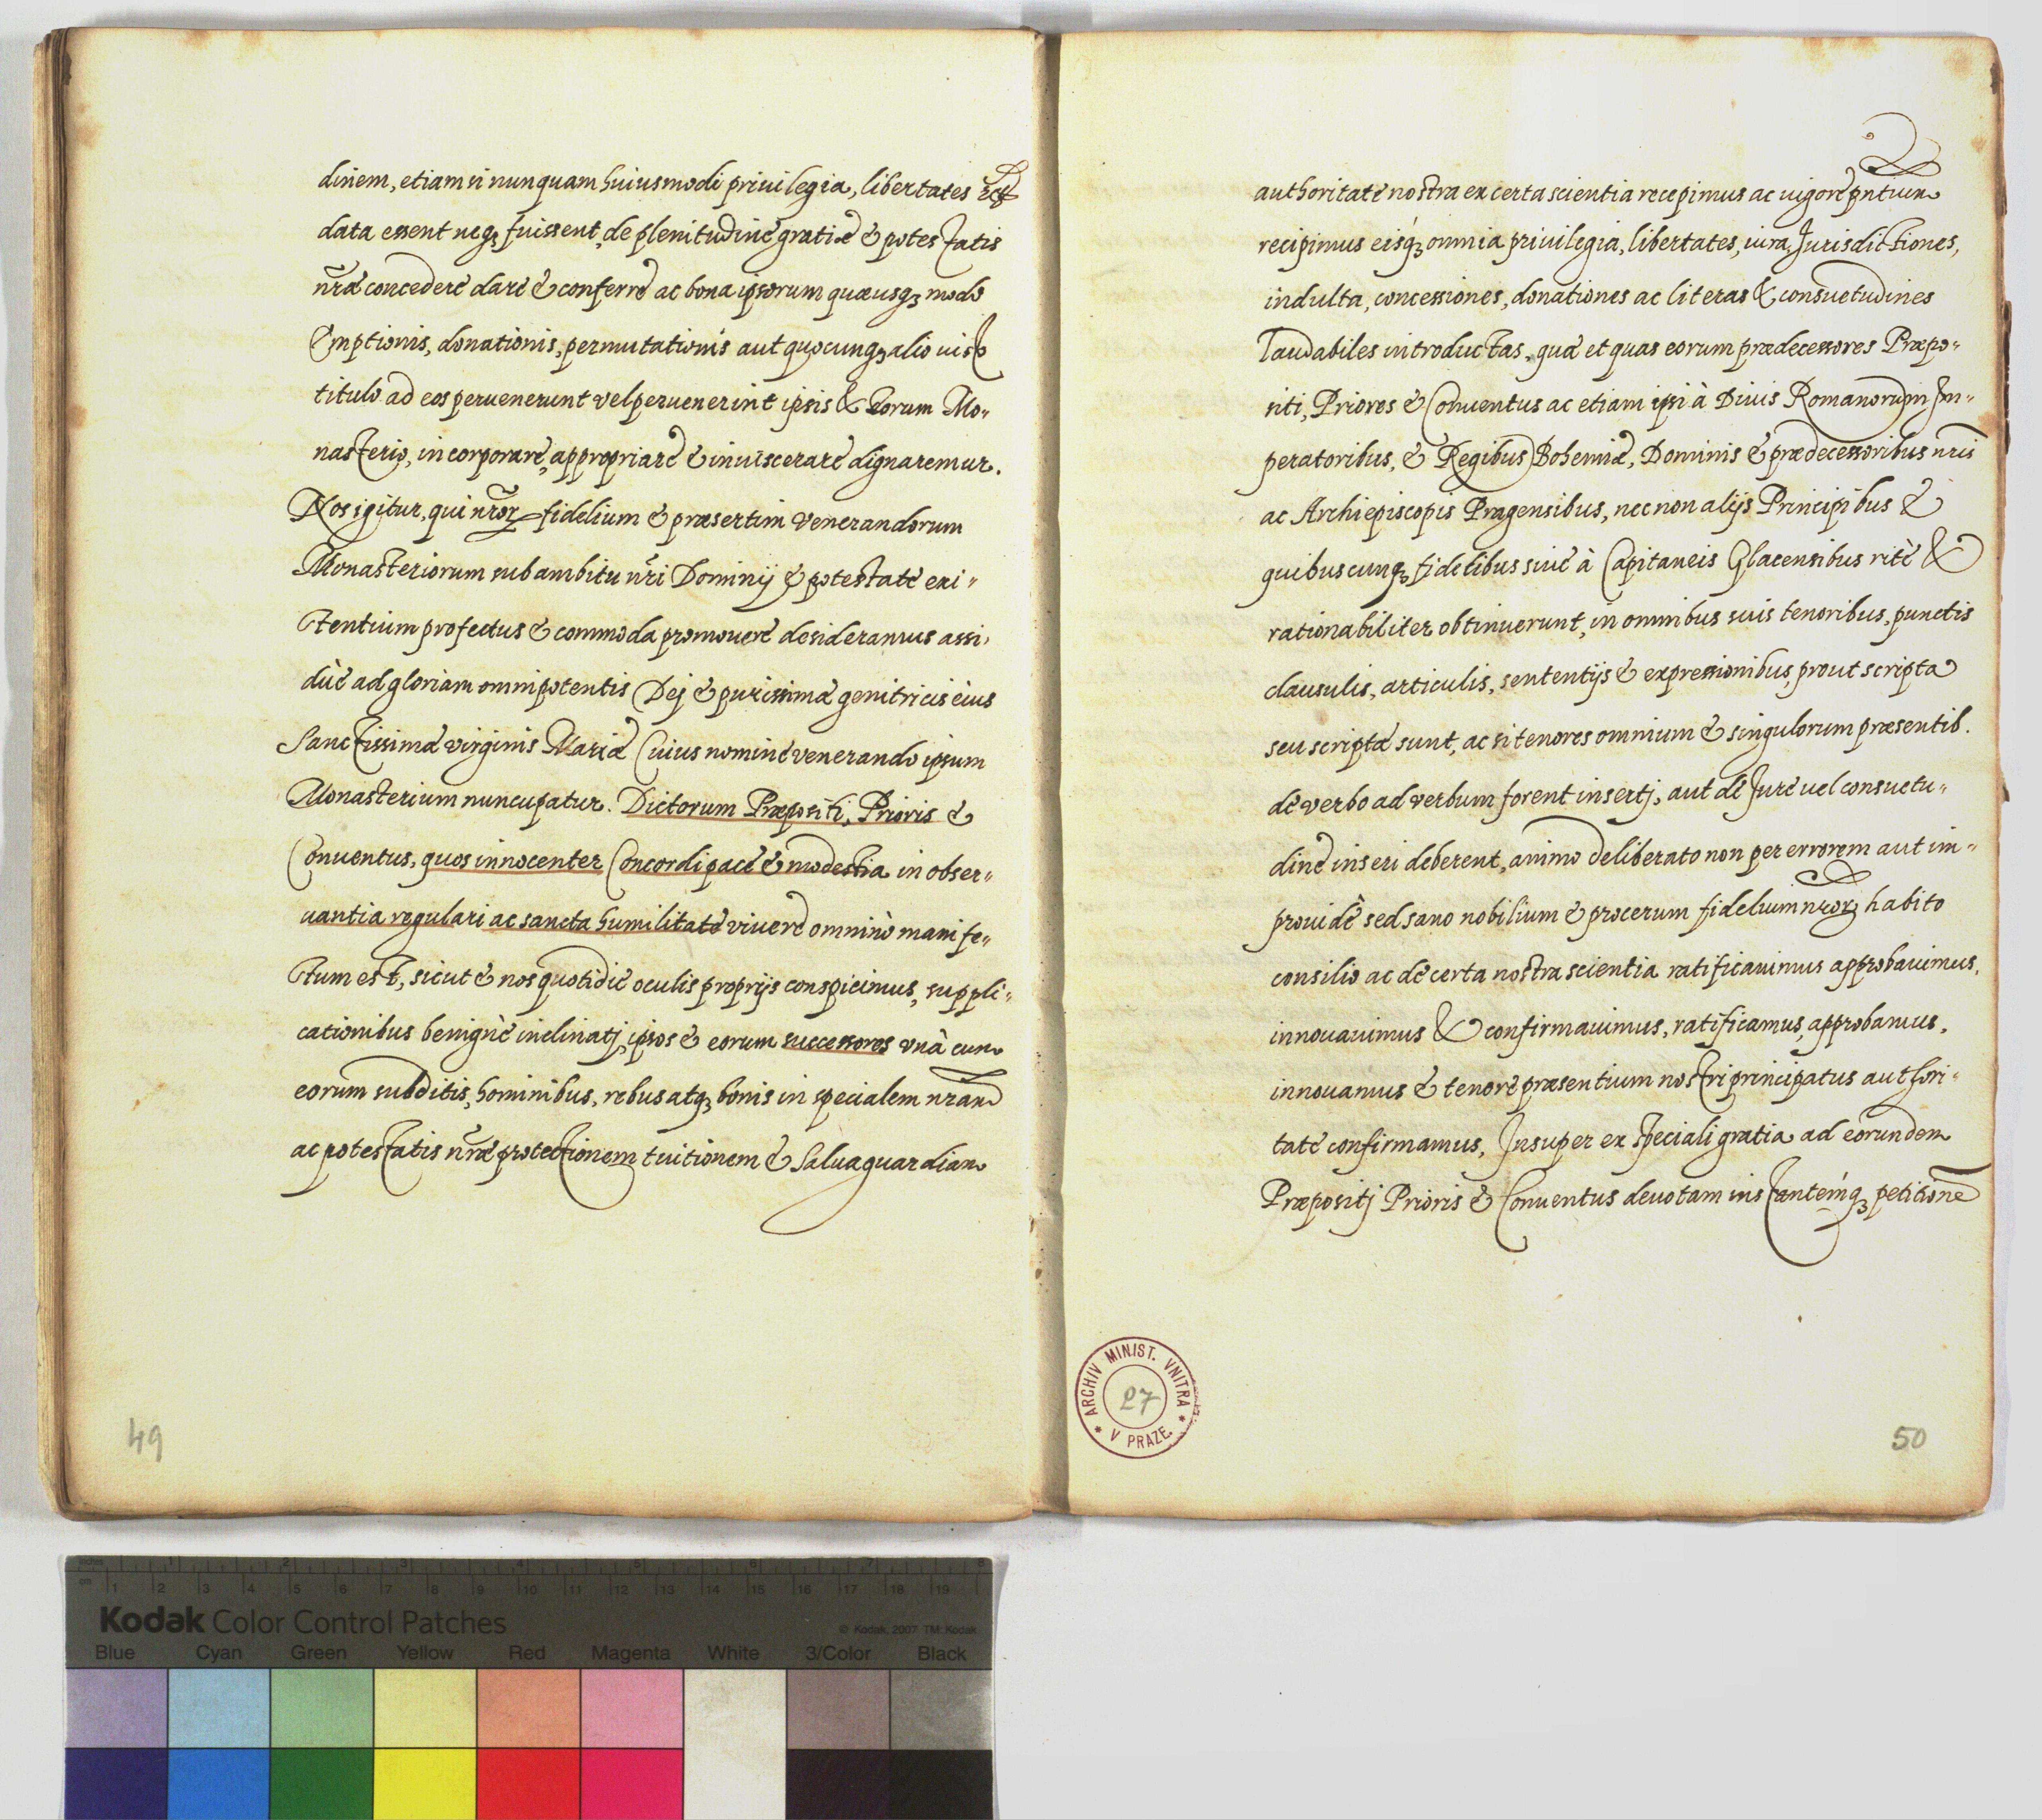 dinem, etiam si nunquam huiusmodi priuilegia, libertates
data essent neq; fuissent, de plenitudine gratiæ & potestatis
nr̃æ concedere dare & conferre ac bona ipsorum quæusq; modo
Emptionis, donationis, permutationis aut quocunq; alio
titulo ad eos peruenerunt vel peruenerint ipsis & Eorum Mo„
nasterio, incorporare, appropriare & inuiscerare dignaremur.
Nos igitur, qui nr̃or fidelium & præsertim Venerandorum
Monasteriorum sub ambitu nr̃i Dominij & potestate exi„
stentium profectus & commoda promouere desideramus assi„
duè ad gloriam omnipotentis Dej & purissimæ genitricis eius
Sanctissimæ virginis Mariæ Cuius nomine venerando ipsum
Monasterium nuncupatur. Dictorum Præpositi, Prioris &
Conuentus, quos innocenter Concordi pace & modestia in obser„
uantia regulari ac sancta humilitate viuere omninò manife„
stum est, sicut & nos quotidie oculis proprijs conspicimus, suppli„
cationibus benignè inclinatj, ipsos & eorum successores vnà cum
eorum subditis, hominibus, rebus atq; bonis in specialem nram
ac potestatis nr̃æ protectionem tuitionem & Saluaguardiam
49
authoritate nostra ex certa scientia recepimus ac uigore pntium
recipimus eisq́; omnia priuilegia, libertates, iura, Jurisdictiones,
indulta, concessiones, donationes ac literas & consuetudines
laudabiles introductas, quæ et quas eorum prædecessores Præpo„
siti, Priores & Conuentus ac etiam ipsi à Diuis Romanorum Im„
peratoribus, & Regibus Bohemiæ, Dominis & prædecessoribus nr̃is
ac Archiepiscopis Pragensibus, nec non alijs Principibus &
quibuscunq; fidelibus siue à Capitaneis Glacensibus ritè &
rationabiliter obtinuerunt, in omnibus suis tenoribus, punctis
clausulis, articulis, sententijs & expressionibus, prout scripta
seu scriptæ sunt, ac si tenores omnium & singulorum præsentib.
de verbo ad verbum forent insertj, aut de Jure uel consuetu„
dine inseri deberent, animo deliberato non per errorem aut im„
prouidè sed sano nobilium & procerum fidelium nror; habito
consilio ac de certa nostra scientia ratificauimus approbauimus,
innouauimus & confirmauimus, ratificamus, approbamus,
innouamus & tenore præsentium nostri principatus authori„
tate confirmamus, Insuper ex speciali gratia ad eorundem
Præpositj Prioris & Conuentus deuotam instantemq́; petitione
ARCHIV MINIST. VNITRA
V PRAZE.
27
50
Kodak Color Control Patches
© Kodak, 2007 TM: Kodak
Blue Cyan Green Yellow Red Magenta White 3/Color Black